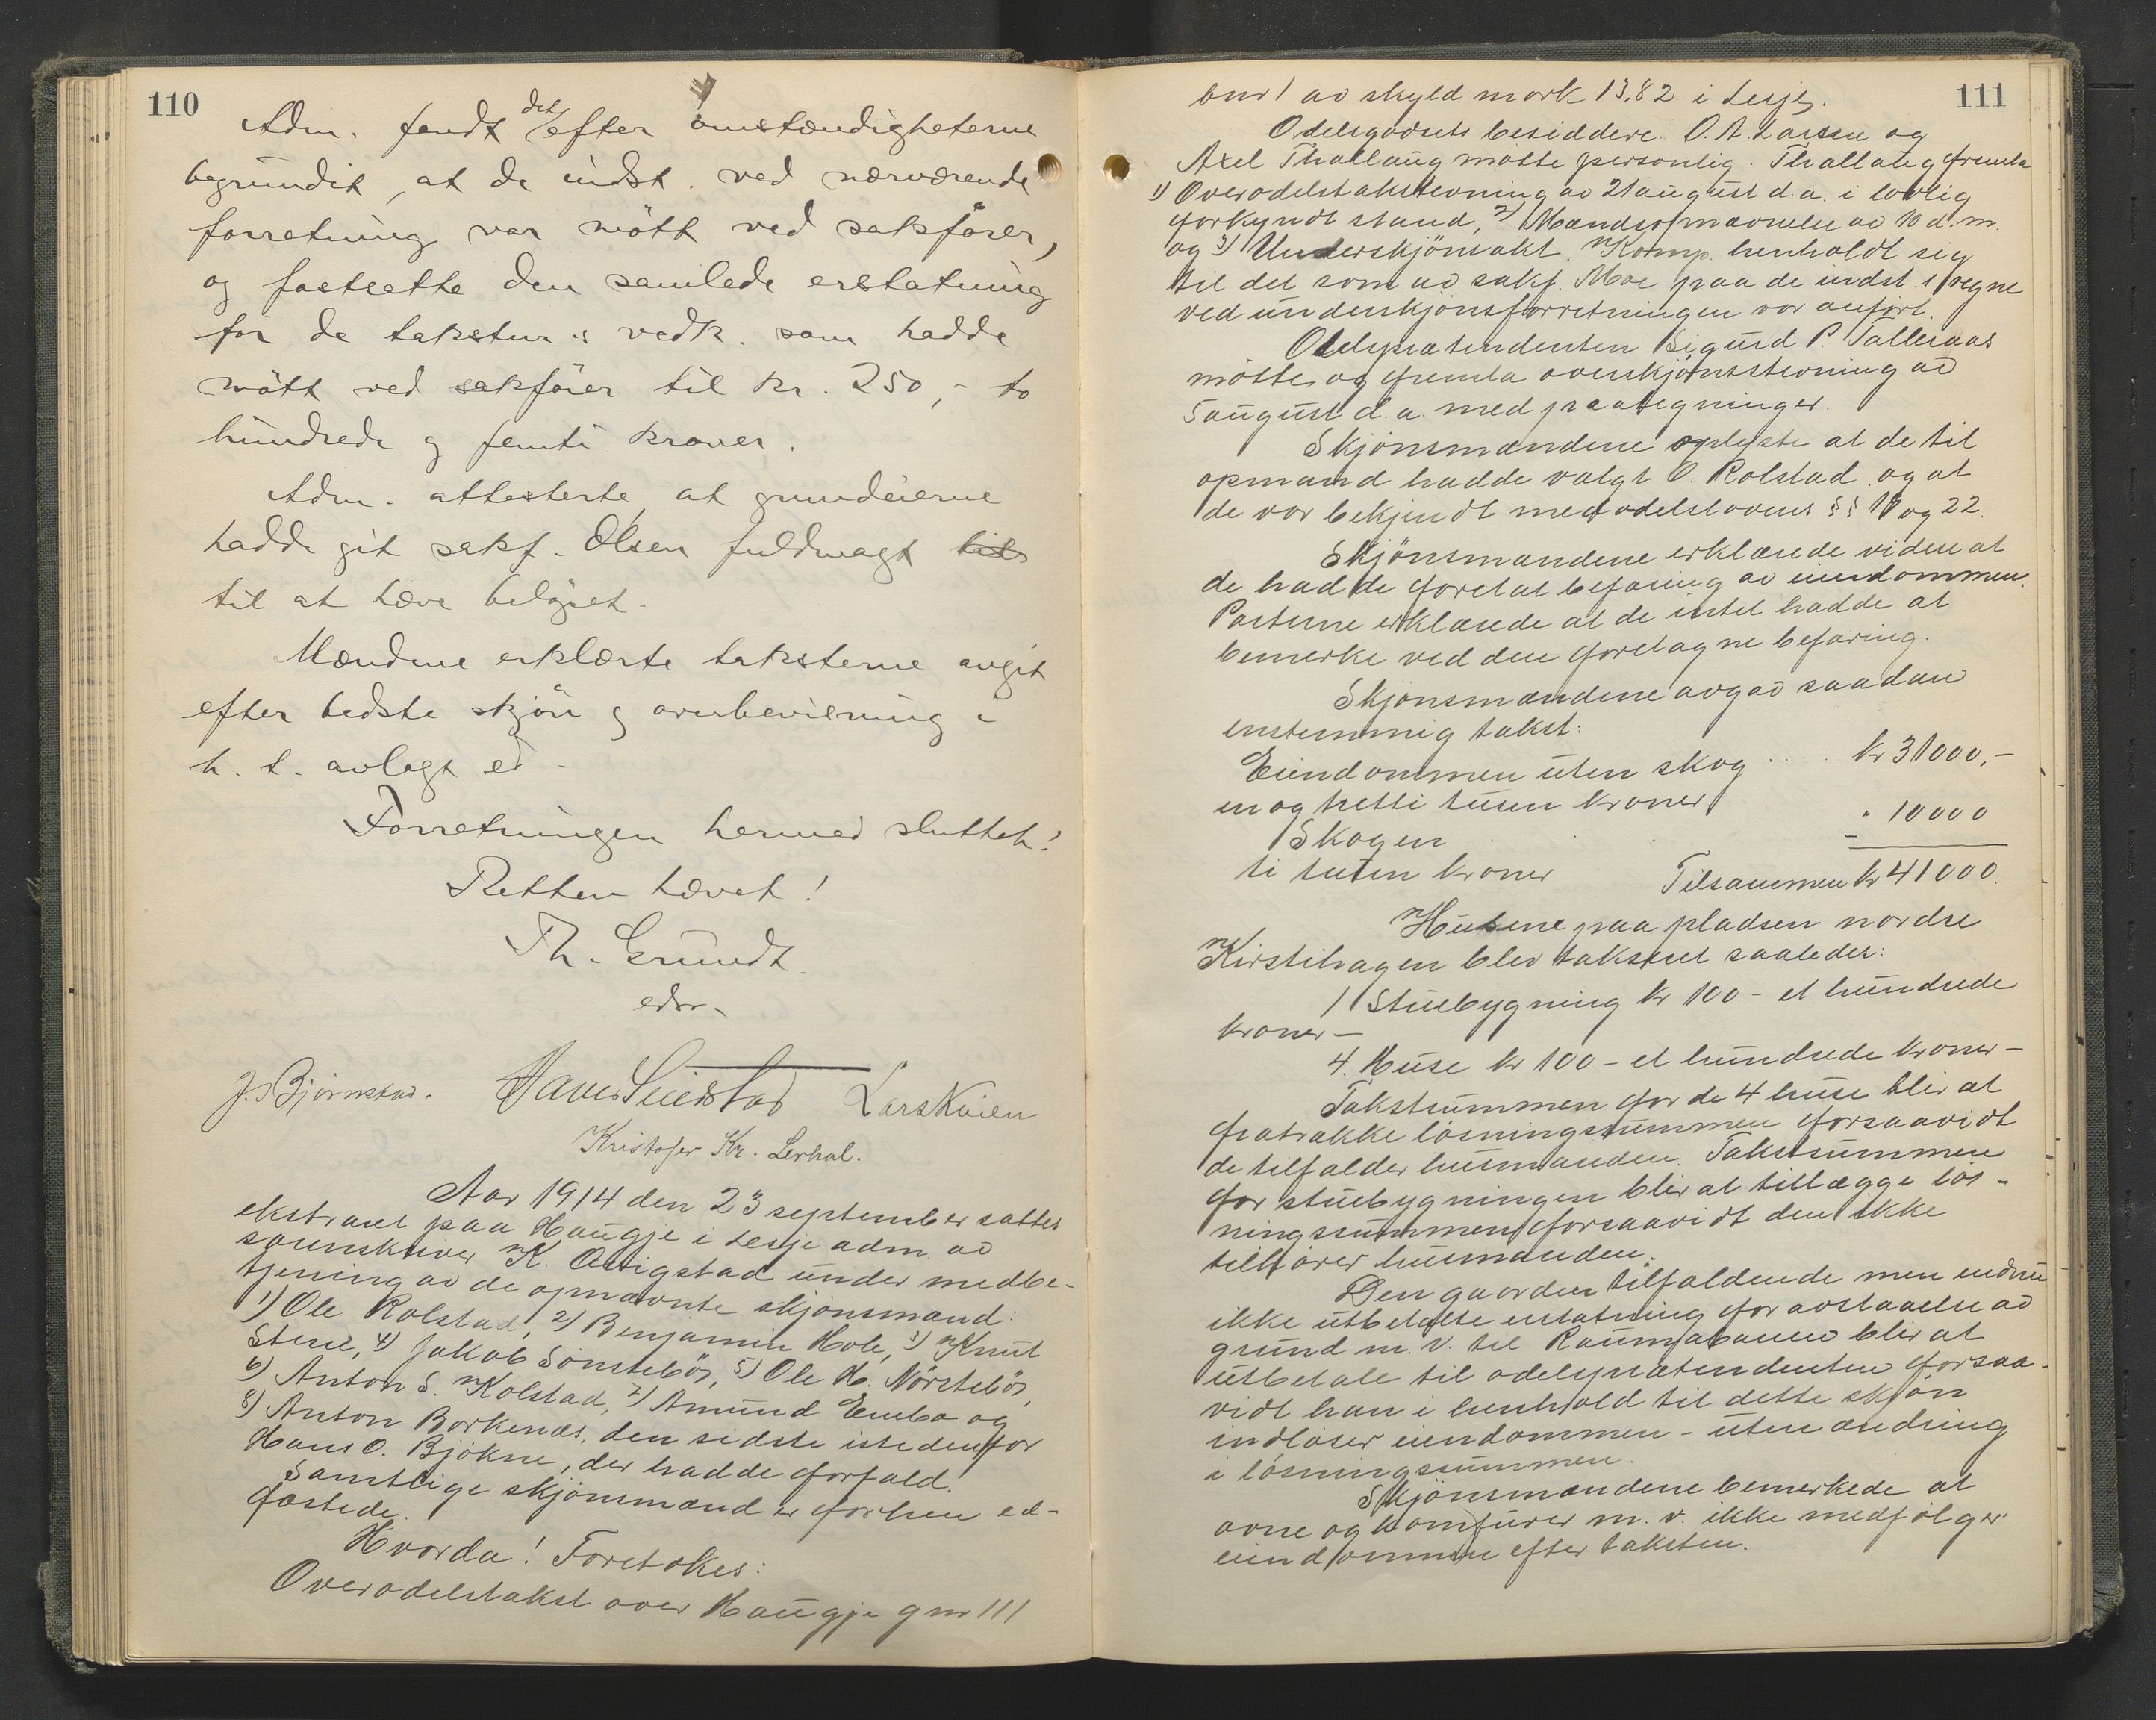 110
Adm. fandt det efter omstændigheterne
begrundet, at de indst. ved nærværende
forretning var mött ved sakförer,
og fastsette den samlede erstatning
for de takstnr.s vedk. som hadde
mött ved sakförer til kr. 250,- to
hundrede og femti kroner.
Adm. attesterte, at grundeierne
hadde git sakf. Olsen fuldmagt til
til at hæve belöpet.
Mændene erklærte taksterne avgit
efter bedste skjön og overbevisning i
h. t. avlagt ed.
Forretningen hermed sluttet!
Retten hævet!
Th. Grundt.
edsv.
J. Björnstad. Hans Lars Kvien
Kristofer Kr. Lerhol.
Aar 1914 den 23 september sattes
ekstraret paa Haugje i Lesje adm. av
sorenskriver K. Qvigstad under medbe-
tjening av de opnævnte skjönsmænd:
1) Ole Rolstad, 2) Benjamin Hole, 3) Knut
Stene, 4) Jakob Sönstebö, 5) Ole H. Nörstebö,
6) Anton S. Kolstad, 7) Amund Enebo og
8) Anton Borkenæs, den sidste istedenfor
Hans O. Bjökne, der hadde forfald.
Samtlige skjönsmænd er forhen ed-
fæstede.
Hvorda! Foretokes:
Overodelstakst over Haugje gnr 111
111
bnr 1 av skyld mark 13.82 i Lesje.
Odelsgodsets besiddere O. A. Larsen og
Axel Thallaug mötte personlig. Thallaug fremla
1) Overodelstakstevning av 21 august d.a. i lovlig
forkyndt stand, 2) Mandsopnævnelse av 10 d.m.
og 3) Underskjönsakt. Komp. henholdt sig
til det som av sakf. Moe paa de indst.s vegne
ved underskjönsforretningen var anfört.
Odelsprætendenten Sigurd P. Talleraas
mötte og fremla overskjönsstevning av
5 august d.a. med paategninger.
Skjönsmændene oplyste at de til
opmand hadde valgt O. Rolstad og at
de var bekjendt med odelslovens §§ 17 og 22.
Skjönsmændene erklærede videre at
de hadde foretat befaring av eiendommen.
Parterne erklærede at de intet hadde at
bemerke ved den foretagne befaring.
Skjönsmændene avgav saadan
enstemmig takst:
Eiendommen uten skog ..... kr 31000,-
en og tretti tusen kroner
Skogen " 10000
ti tusen kroner Tilsammen kr 41000.
Husene paa pladsen nordre
Kirstihagen blev taksteret saaledes:
1 Stuebygning kr 100 - et hundrede
kroner -
4. Huse kr 100 - et hundrede kroner -
Takstsummen for de 4 huse blir at
fratrække lösningssummen forsaavidt
de tilfalder husmanden. Takstsummen
for stuebygningen blir at tillægge lös-
ningssummen forsaavidt den ikke
tilhörer husmanden.
Den gaarden tilfaldende men endnu
ikke utbetalte erstatning for avstaaelse av
grund m. v. til Raumabanen blir at
utbetale til odelsprætendenten forsaa-
vidt han i henhold til dette skjön
indlöser eiendommen - uten ændring
i lösningssummen.
Skjönsmændene bemerkede at
ovne og komfurer m. v. ikke medfölger
eiendommen efter taksten.